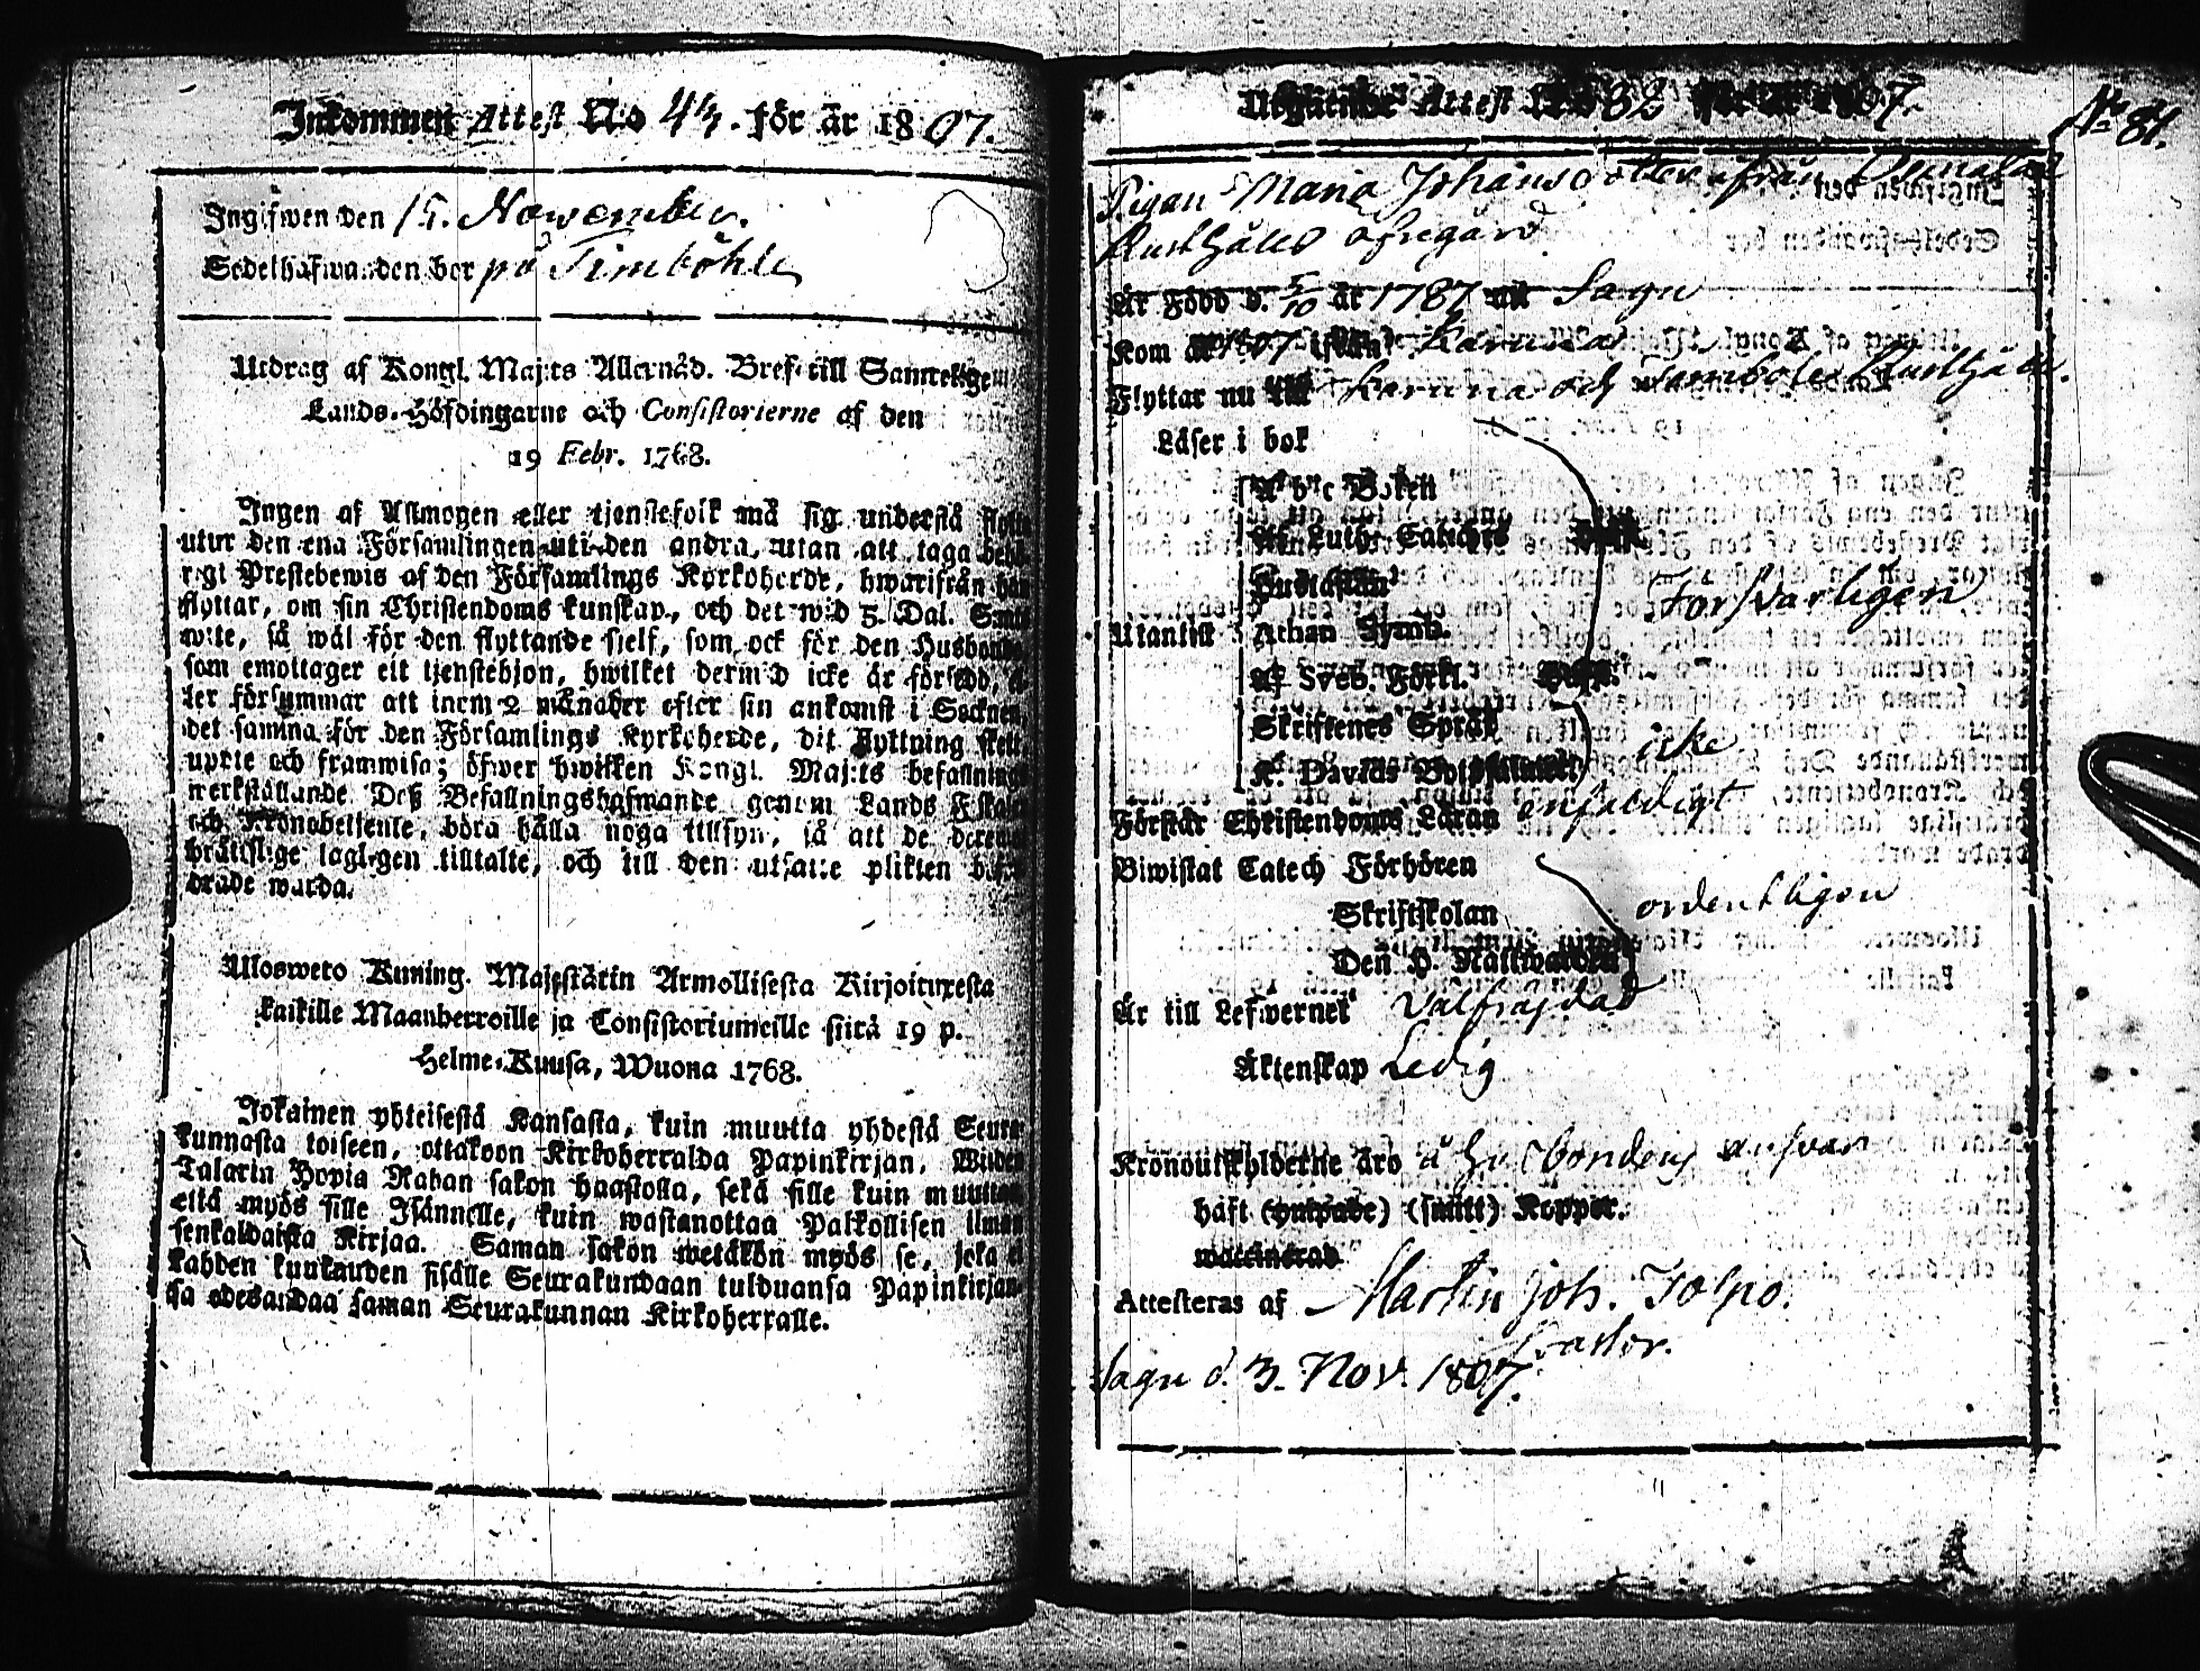 Inkommen Attest No 44. för år 1807.
Ingifwen den 15. November.
Sedelhafwanden bor på Timböhle
Utdrag af Kongl. Maj:ts Allernåd. Bref till Samtelige
Lands-Höfdingarne och Consistorierne af den
19 Febr. 1768.
Ingen af Allmogen eller tjenstefolk må sig understå flytta
utur den ena Församlingen uti den andra, utan att taga behö-
rigt Prestebewis af den Församlings Kyrkoherde, hwarifrån han
flyttar, om sin Christendoms kunskap, och det wid 5. Dal. S:mts
wite, så wäl för den flyttande sjelf, som ock för den Husbonde,
som emottager ett tjenstehjon, hwilket dermed icke är försedd, el-
ler försummar att inom 2 månader efter sin ankomst i Socknen,
det samma för den Församlings Kyrkoherde, dit flyttning skett,
upte och framwisa; öfwer hwilken Kongl. Maj:ts befallnings
werkställande Deß Befallningshafwande genom Lands Fiskaler
och Kronobetjente, böra hålla noga tillsyn, så att de deremot
brätslige lagligen tilltalte, och till den utsatte plikten befor-
drade warda.
Ulosweto Kuning. Majestätin Armollisesta Kirjoituxesta
kaikille Maanherroille ja Consistoriumeille siitä 19 p.
Helme-Kuusa, Wuona 1768.
Jokainen yhteisestä Kansasta, kuin muutta yhdestä Seura-
kunnasta toiseen, ottakoon Kirkoherralda Papinkirjan, Wiiden
Talarin Hopia Rahan sakon haastolla, sekä sille kuin muuttaa
että myös sille Isännelle, kuin wastanottaa Palkollisen ilman
senkaldaista Kirjaa. Saman sakon wetäkön myös se, joka ei
kahden kuukauden sisälle Seurakundaan tulduansa Papinkirjan-
sa edesandaa saman Seurakunnan Kirkoherralle.
Attest 82 07.
No 81.
Pigan Maria Johansdotter ifrån
Rusthålls afvegård
Är Född d. 5/10 år 1787 uti Sagu
Kom år 1807 ifrån Karuna
Flyttar nu till Karuna och Timböle Rusthåll.
Läser i bok
A b c Boken
Af Luth. Catches
Hustaflan
Försvarligen
Utantill Athan Symb.
Af Sveb. Förkl.
Skriftenes Språk
icke
K. Davids Botpsalmer
Förstår Christendoms Läran enfaldigt
Biwistat Catech Förhören
Skriftskolan ordentligen
Den H. Nattwarden
Är till Lefwernet Välfräjdad
Äktenskap Ledig
Kronoutskylderne äro å Husbondens ansvar
haft Koppor.
Attesteras af Martin Joh. Tolpo.
Pastor.
Sagu d. 3. Nov. 1807.